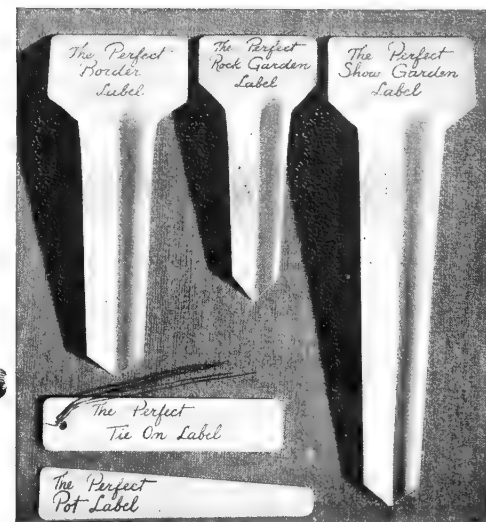 The Perfect
Border
Label.
The Perfect
Rock Garden
Label
The Perfect
Show Garden
Label
The Perfect
Tie On Label
The Perfect
Pot Label